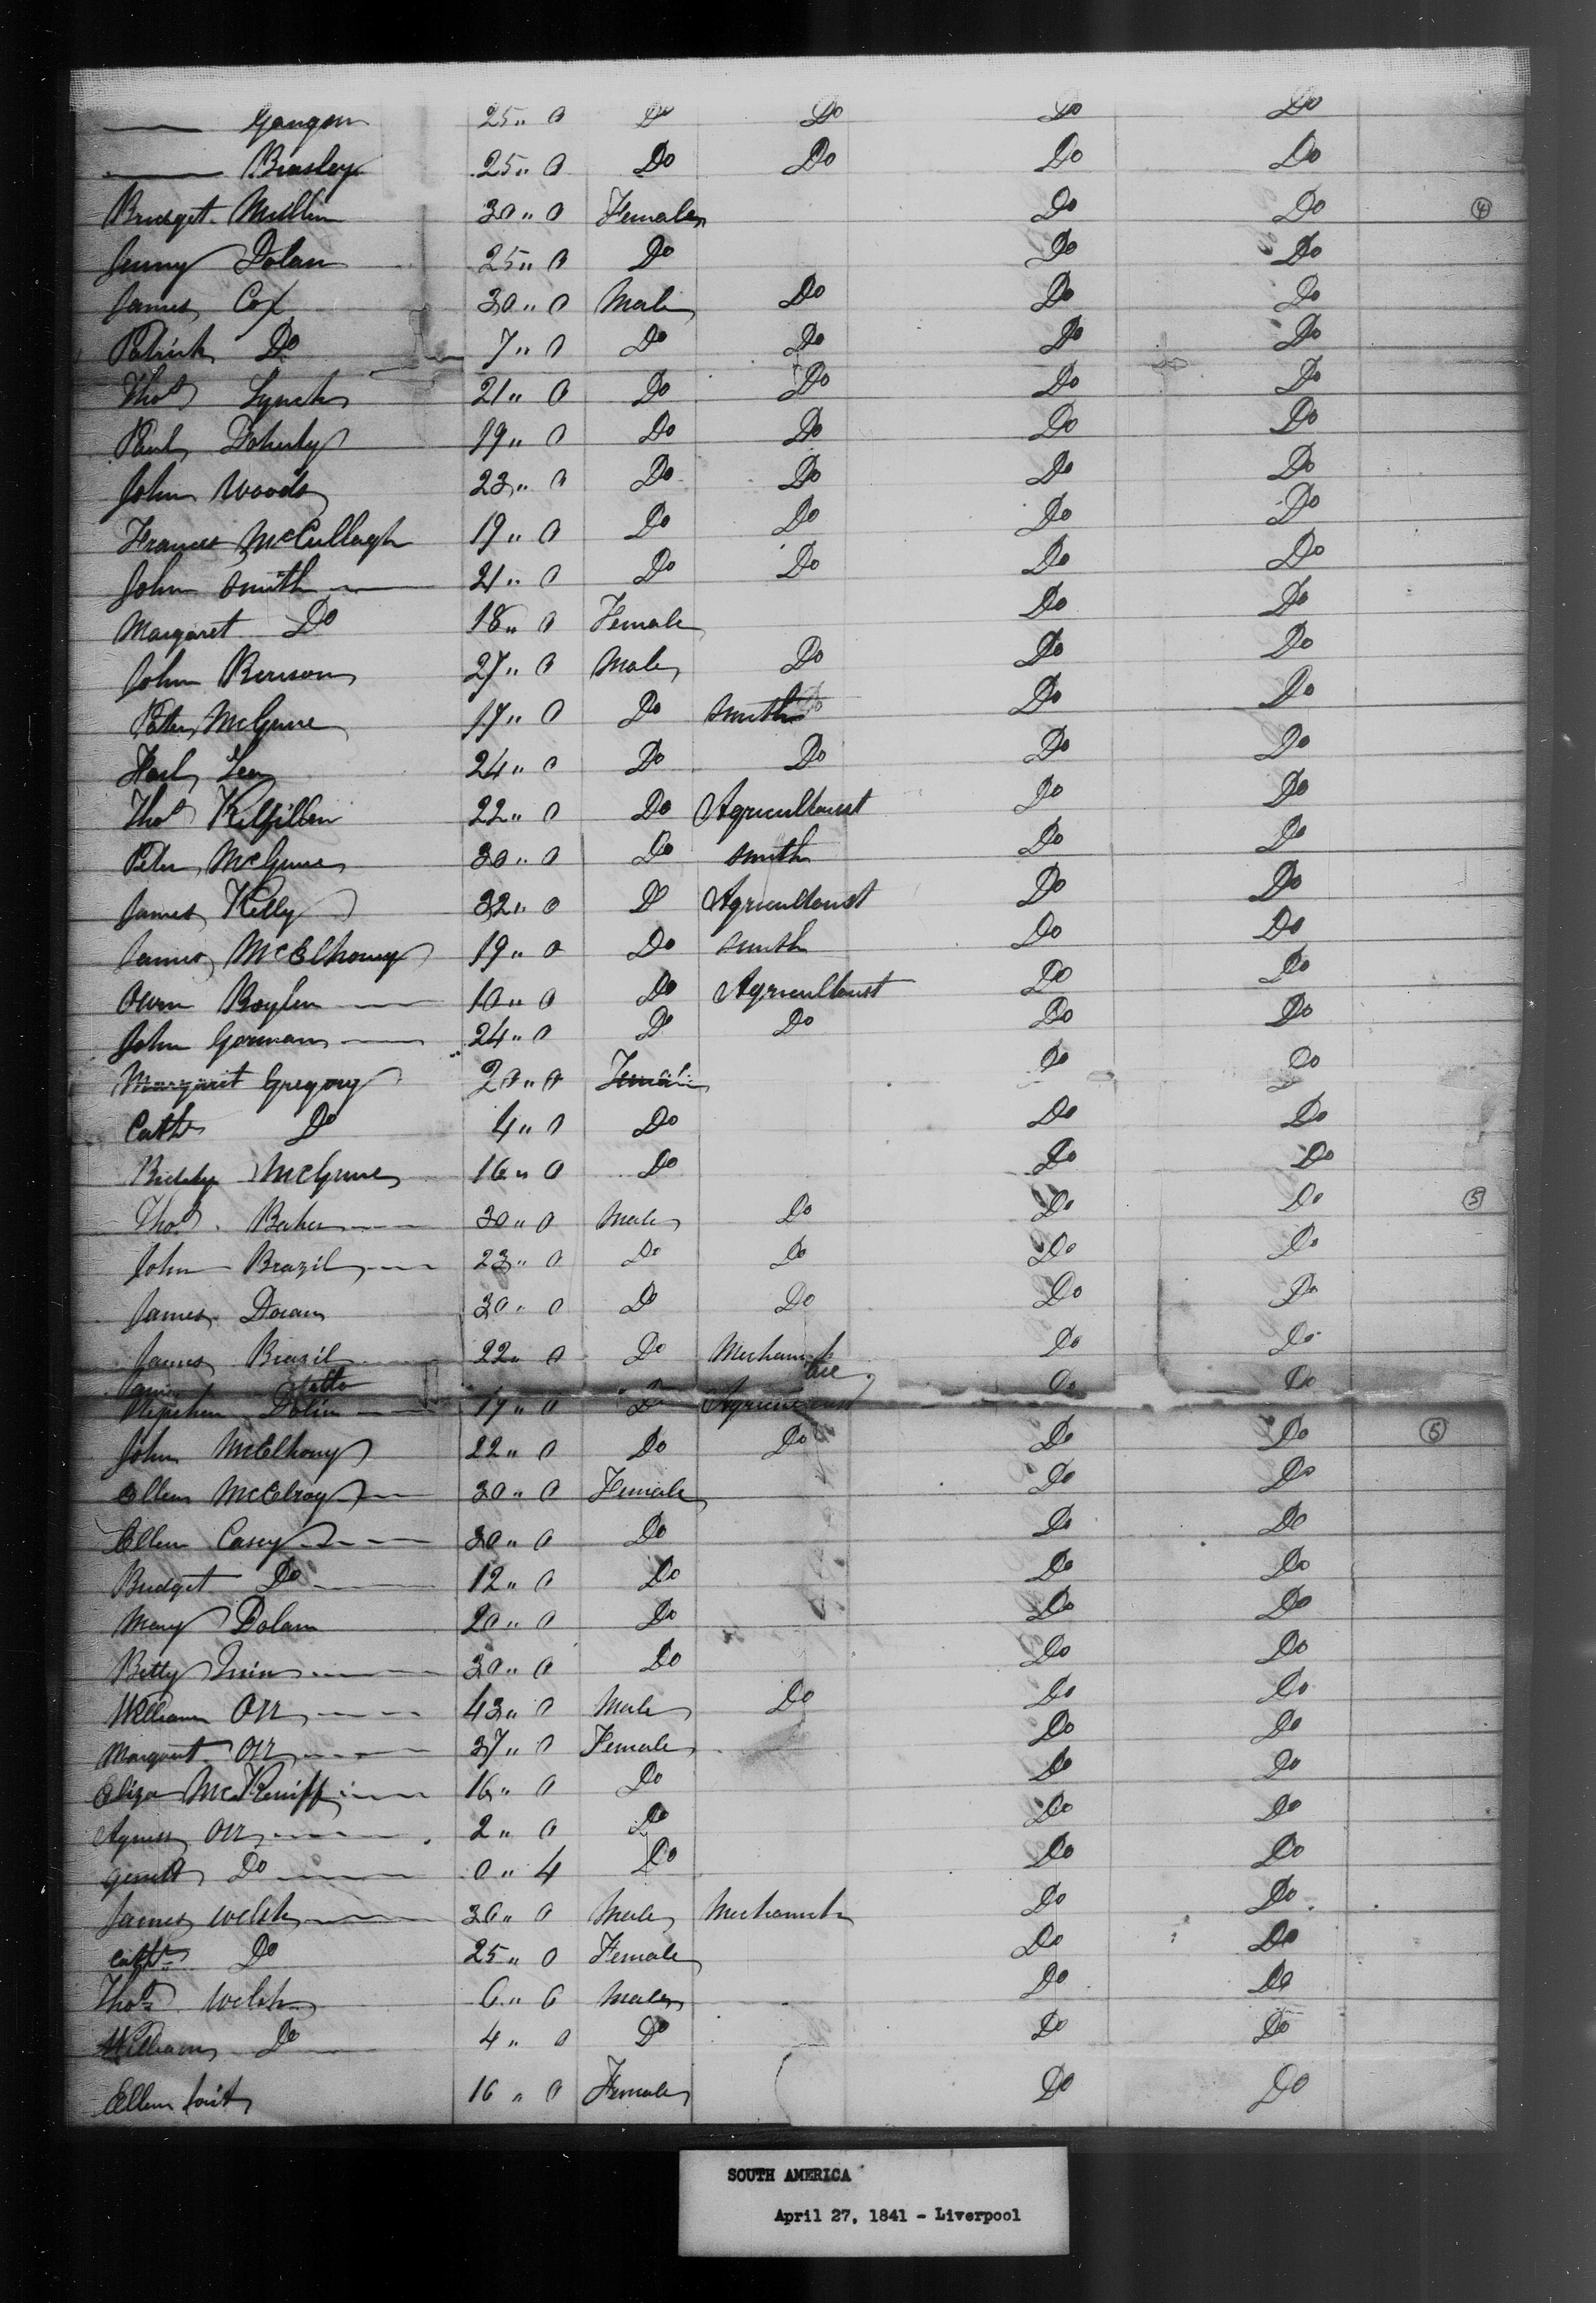 Gangon 25 " 0 Do Do Do Do
Beasley 25 " 0 Do Do Do Do
Bridget Mullin 30 " 0 Female Do Do 4
Jenny Dolan 25 " 0 Do Do Do
James Cox 30 " 0 Male Do Do Do
Patrick Do 7 " 0 Do Do Do Do
Thos Lynch 21 " 0 Do Do Do Do
Doherty 19 " 0 Do Do Do Do
John Woods 23 " 0 Do Do Do Do
Frances McCullagh 19 " 0 Do Do Do Do
John Smith 21 " 0 Do Do Do Do
Margaret Do 18 " 0 Female Do Do
John Benson 27 " 0 Male Do Do Do
McGuire 17 " 0 Do Smith Do Do Do
24 " 0 Do Do Do Do
Thos Kilfillen 22 " 0 Do Agriculturist Do Do
Peter McGuire 30 " 0 Do Smith Do Do
James Kelly 32 " 0 Do Agriculturist Do Do
James McElhoney 19 " 0 Do Smith Do Do
Owen Boylen 10 " 0 Do Agriculturist Do Do
John Gorman 24 " 0 Do Do Do Do
Margarit Gregory 20 " 0 Female Do Do
Cath Do 4 " 0 Do Do Do
Biddy McGuire 16 " 0 Do Do Do
Thos Baker 30 " 0 Male Do Do Do 5
John Brazil 23 " 0 Do Do Do Do
James Doran 30 " 0 Do Do Do Do
James Brazil 22 " 0 Do Mechanick Do Do
Stephen Dolin 19 " 0 Do Do Do
John McElhony 22 " 0 Do Do Do Do 5
Ellen McElroy 30 " 0 Female Do Do
Ellen Casey 30 " 0 Do Do Do
Bridget Do 12 " 0 Do Do Do
Mary Dolan 20 " 0 Do Do Do
Betty Quin 30 " 0 Do Do Do
William Orr 43 " 0 Male Do Do Do
Margaret Orr 37 " 0 Female Do Do
Eliza McKeniff 16 " 0 Do Do Do
Agness Orr 2 " 0 Do Do Do
Do 0 " 4 Do Do Do
James Welch 30 " 0 Male Mechanick Do Do
Cathn Do 25 " 0 Female Do Do
Thos Welch 6 " 6 Male Do Do
William Do 4 " 0 Do Do Do
Ellen 16 " 0 Female Do Do
SOUTH AMERICA
April 27, 1841 - Liverpool